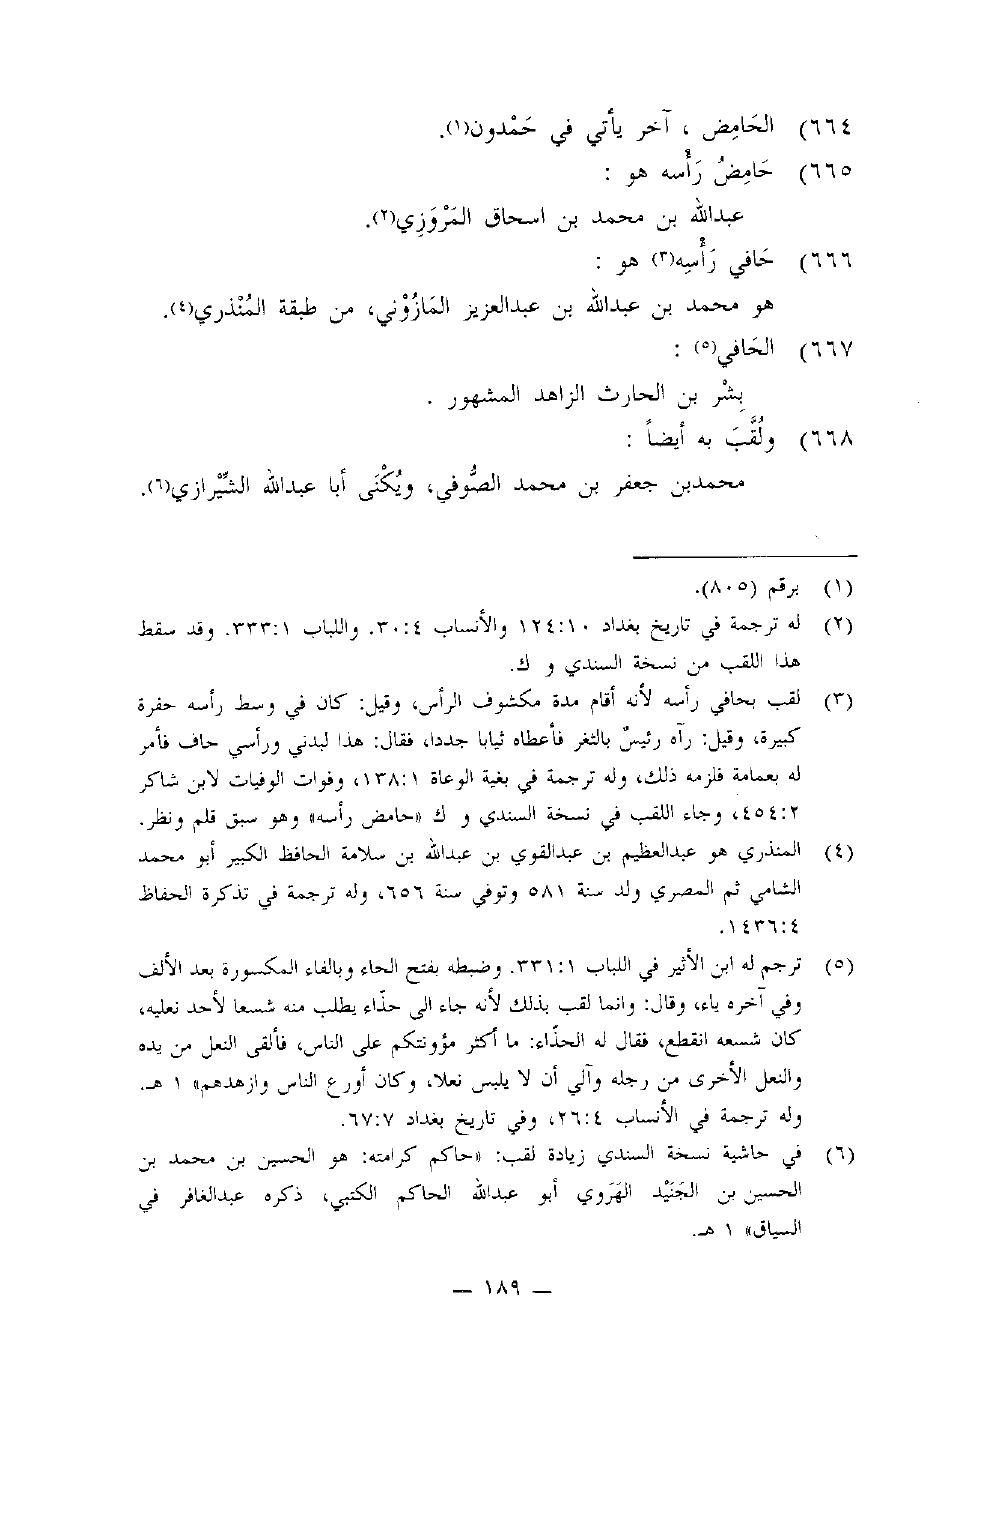 ٦٦٤) الحَامِض ، آخر يأتي في حَمْدون(١).
٦٦٥) حَامِضُ رَأْسه هو :
عبدالله بن محمد بن اسحاق المَرْوَزِي(٢).
٦٦٦) حَافي رَأْسِه(٣) هو :
هو محمد بن عبدالله بن عبدالعزيز المَازُوْني، من طبقة المُنْذري(٤).
٦٦٧) الحَافي(٥) :
بِشْر بن الحارث الزاهد المشهور .
٦٦٨) ولُقِّبَ به أيضاً :
محمدبن جعفر بن محمد الصُّوفي، ويُكْنَى أبا عبدالله الشِّيْرازي(٦).
(١) برقم (٨٠٥).
(٢) له ترجمة في تاريخ بغداد ١٢٤:١٠ والأنساب ٣٠:٤. واللباب ٣٣٣:١. وقد سقط
هذا اللقب من نسخة السندي و ك.
(٣) لقب بحافي رأسه لأنه أقام مدة مكشوف الرأس، وقيل: كان في وسط رأسه حفرة
كبيرة، وقيل: رآه رئيسٌ بالثغر فأعطاه ثيابا جددا، فقال: هذا لبدني ورأسي حاف فأمر
له بعمامة فلزمه ذلك، وله ترجمة في بغية الوعاة ١٣٨:١، وفوات الوفيات لابن شاكر
٤٥٤:٢، وجاء اللقب في نسخة السندي و ك «حامض رأسه» وهو سبق قلم ونظر.
(٤) المنذري هو عبدالعظيم بن عبدالقوي بن عبدالله بن سلامة الحافظ الكبير أبو محمد
الشامي ثم المصري ولد سنة ٥٨١ وتوفي سنة ٦٥٦، وله ترجمة في تذكرة الحفاظ
١٤٣٦:٤.
(٥) ترجم له ابن الأثير في اللباب ٣٣١:١. وضبطه بفتح الحاء وبالفاء المكسورة بعد الألف
وفي آخره ياء، وقال: وانما لقب بذلك لأنه جاء الى حذّاء يطلب منه شسعا لأحد نعليه،
كان شسعه انقطع، فقال له الحذّاء: ما أكثر مؤونتكم على الناس، فألقى النعل من يده
والنعل الأخرى من رجله وآلي أن لا يلبس نعلا، وكان أورع الناس وازهدهم» ١ هـ.
وله ترجمة في الأنساب ٢٦:٤، وفي تاريخ بغداد ٦٧:٧.
(٦) في حاشية نسخة السندي زيادة لقب: «حاكم كرامته: هو الحسين بن محمد بن
الحسين بن الجَنَيْد الهَرَوي أبو عبدالله الحاكم الكتبي، ذكره عبدالغافر في
السياق» ١ هـ.
— ١٨٩ —